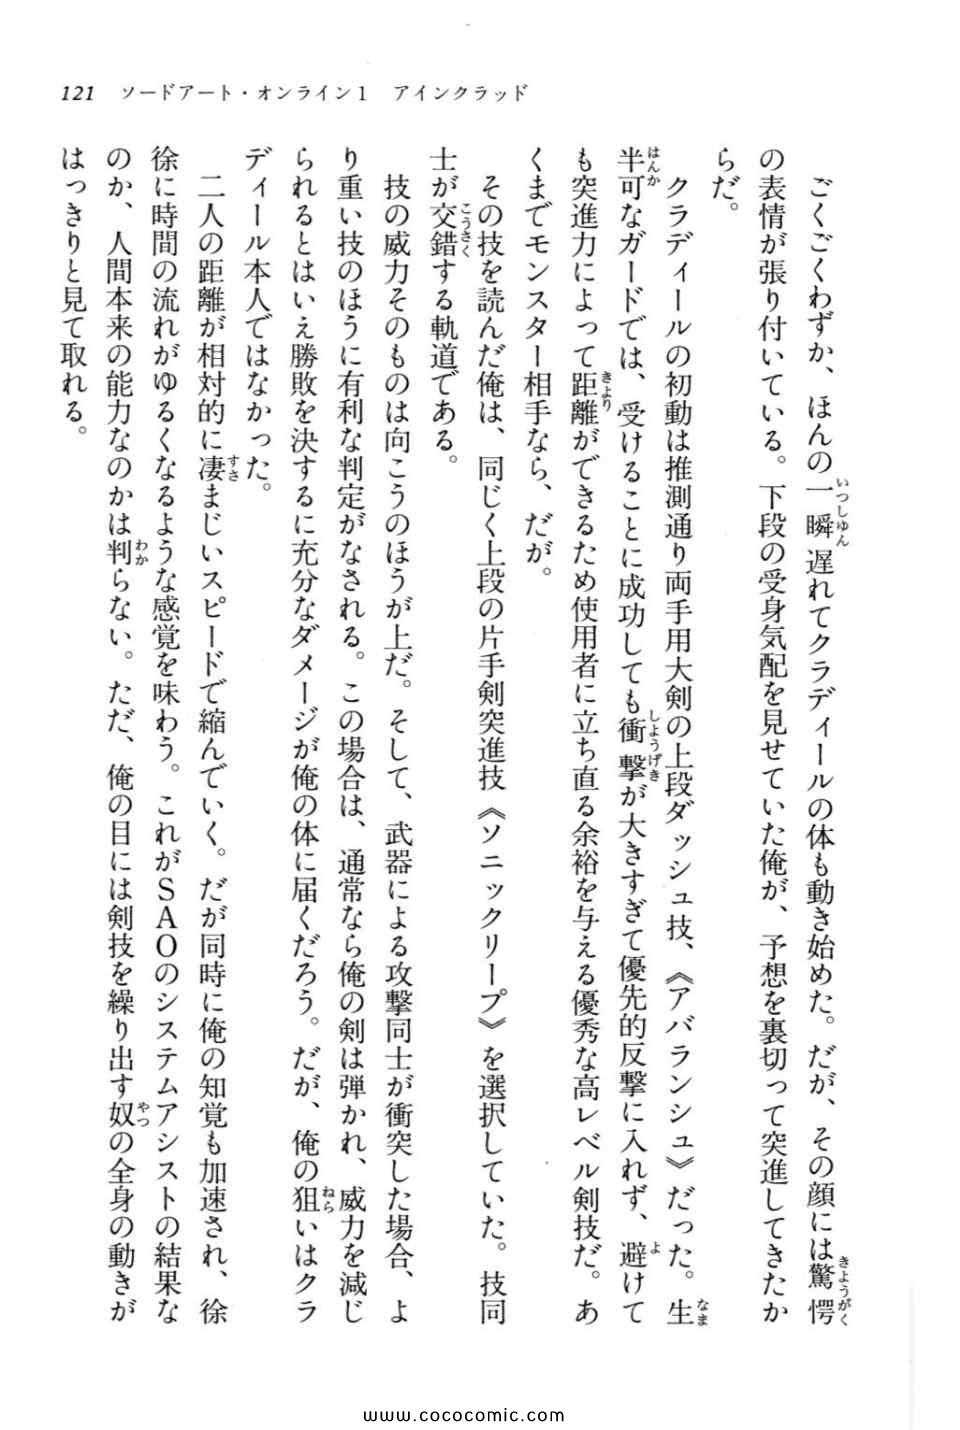 121 ソードアート・オンライン1 アインクラッド
ごくごくわずか、ほんの一瞬遅れてクラディールの体も動き始めた。だが、その顔には驚愕
の表情が張り付いている。下段の受身気配を見せていた俺が、予想を裏切って突進してきたか
らだ。
クラディールの初動は推測通り両手用大剣の上段ダッシュ技、《アバランシュ》だった。生
半可なガードでは、受けることに成功しても衝撃が大きすぎて優先的反撃に入れず、避けて
も突進力によって距離ができるため使用者に立ち直る余裕を与える優秀な高レベル剣技だ。あ
くまでモンスター相手なら、だが。
その技を読んだ俺は、同じく上段の片手剣突進技《ソニックリープ》を選択していた。技同
士が交錯する軌道である。
技の威力そのものは向こうのほうが上だ。そして、武器による攻撃同士が衝突した場合、よ
り重い技のほうに有利な判定がなされる。この場合は、通常なら俺の剣は弾かれ、威力を減じ
られるとはいえ勝敗を決するに充分なダメージが俺の体に届くだろう。だが、俺の狙いはクラ
ディール本人ではなかった。
二人の距離が相対的に凄まじいスピードで縮んでいく。だが同時に俺の知覚も加速され、徐
徐に時間の流れがゆるくなるような感覚を味わう。これがSAOのシステムアシストの結果な
のか、人間本来の能力なのかは判らない。ただ、俺の目には剣技を繰り出す奴の全身の動きが
はっきりと見て取れる。
www.cococomic.com